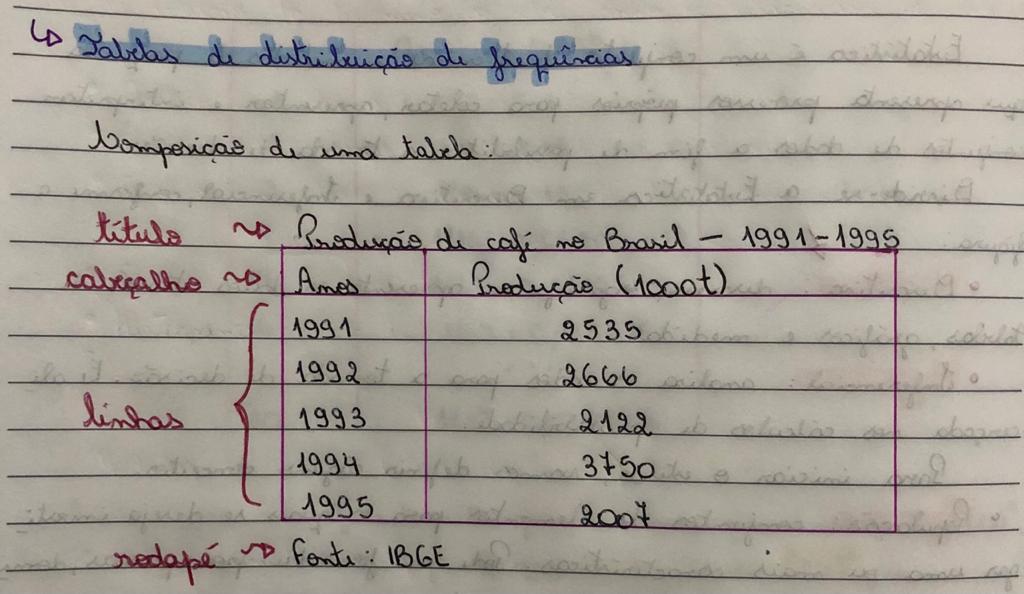 ↳ Tabelas de distribuição de frequências
Composição de uma tabela:
título ⇝ Produção de café no Brasil — 1991-1995
cabeçalho ⇝ Anos Produção (1000t)
1991 2535
1992 2666
linhas 1993 2122
1994 3750
1995 2007
rodapé ⇝ Fonte: IBGE